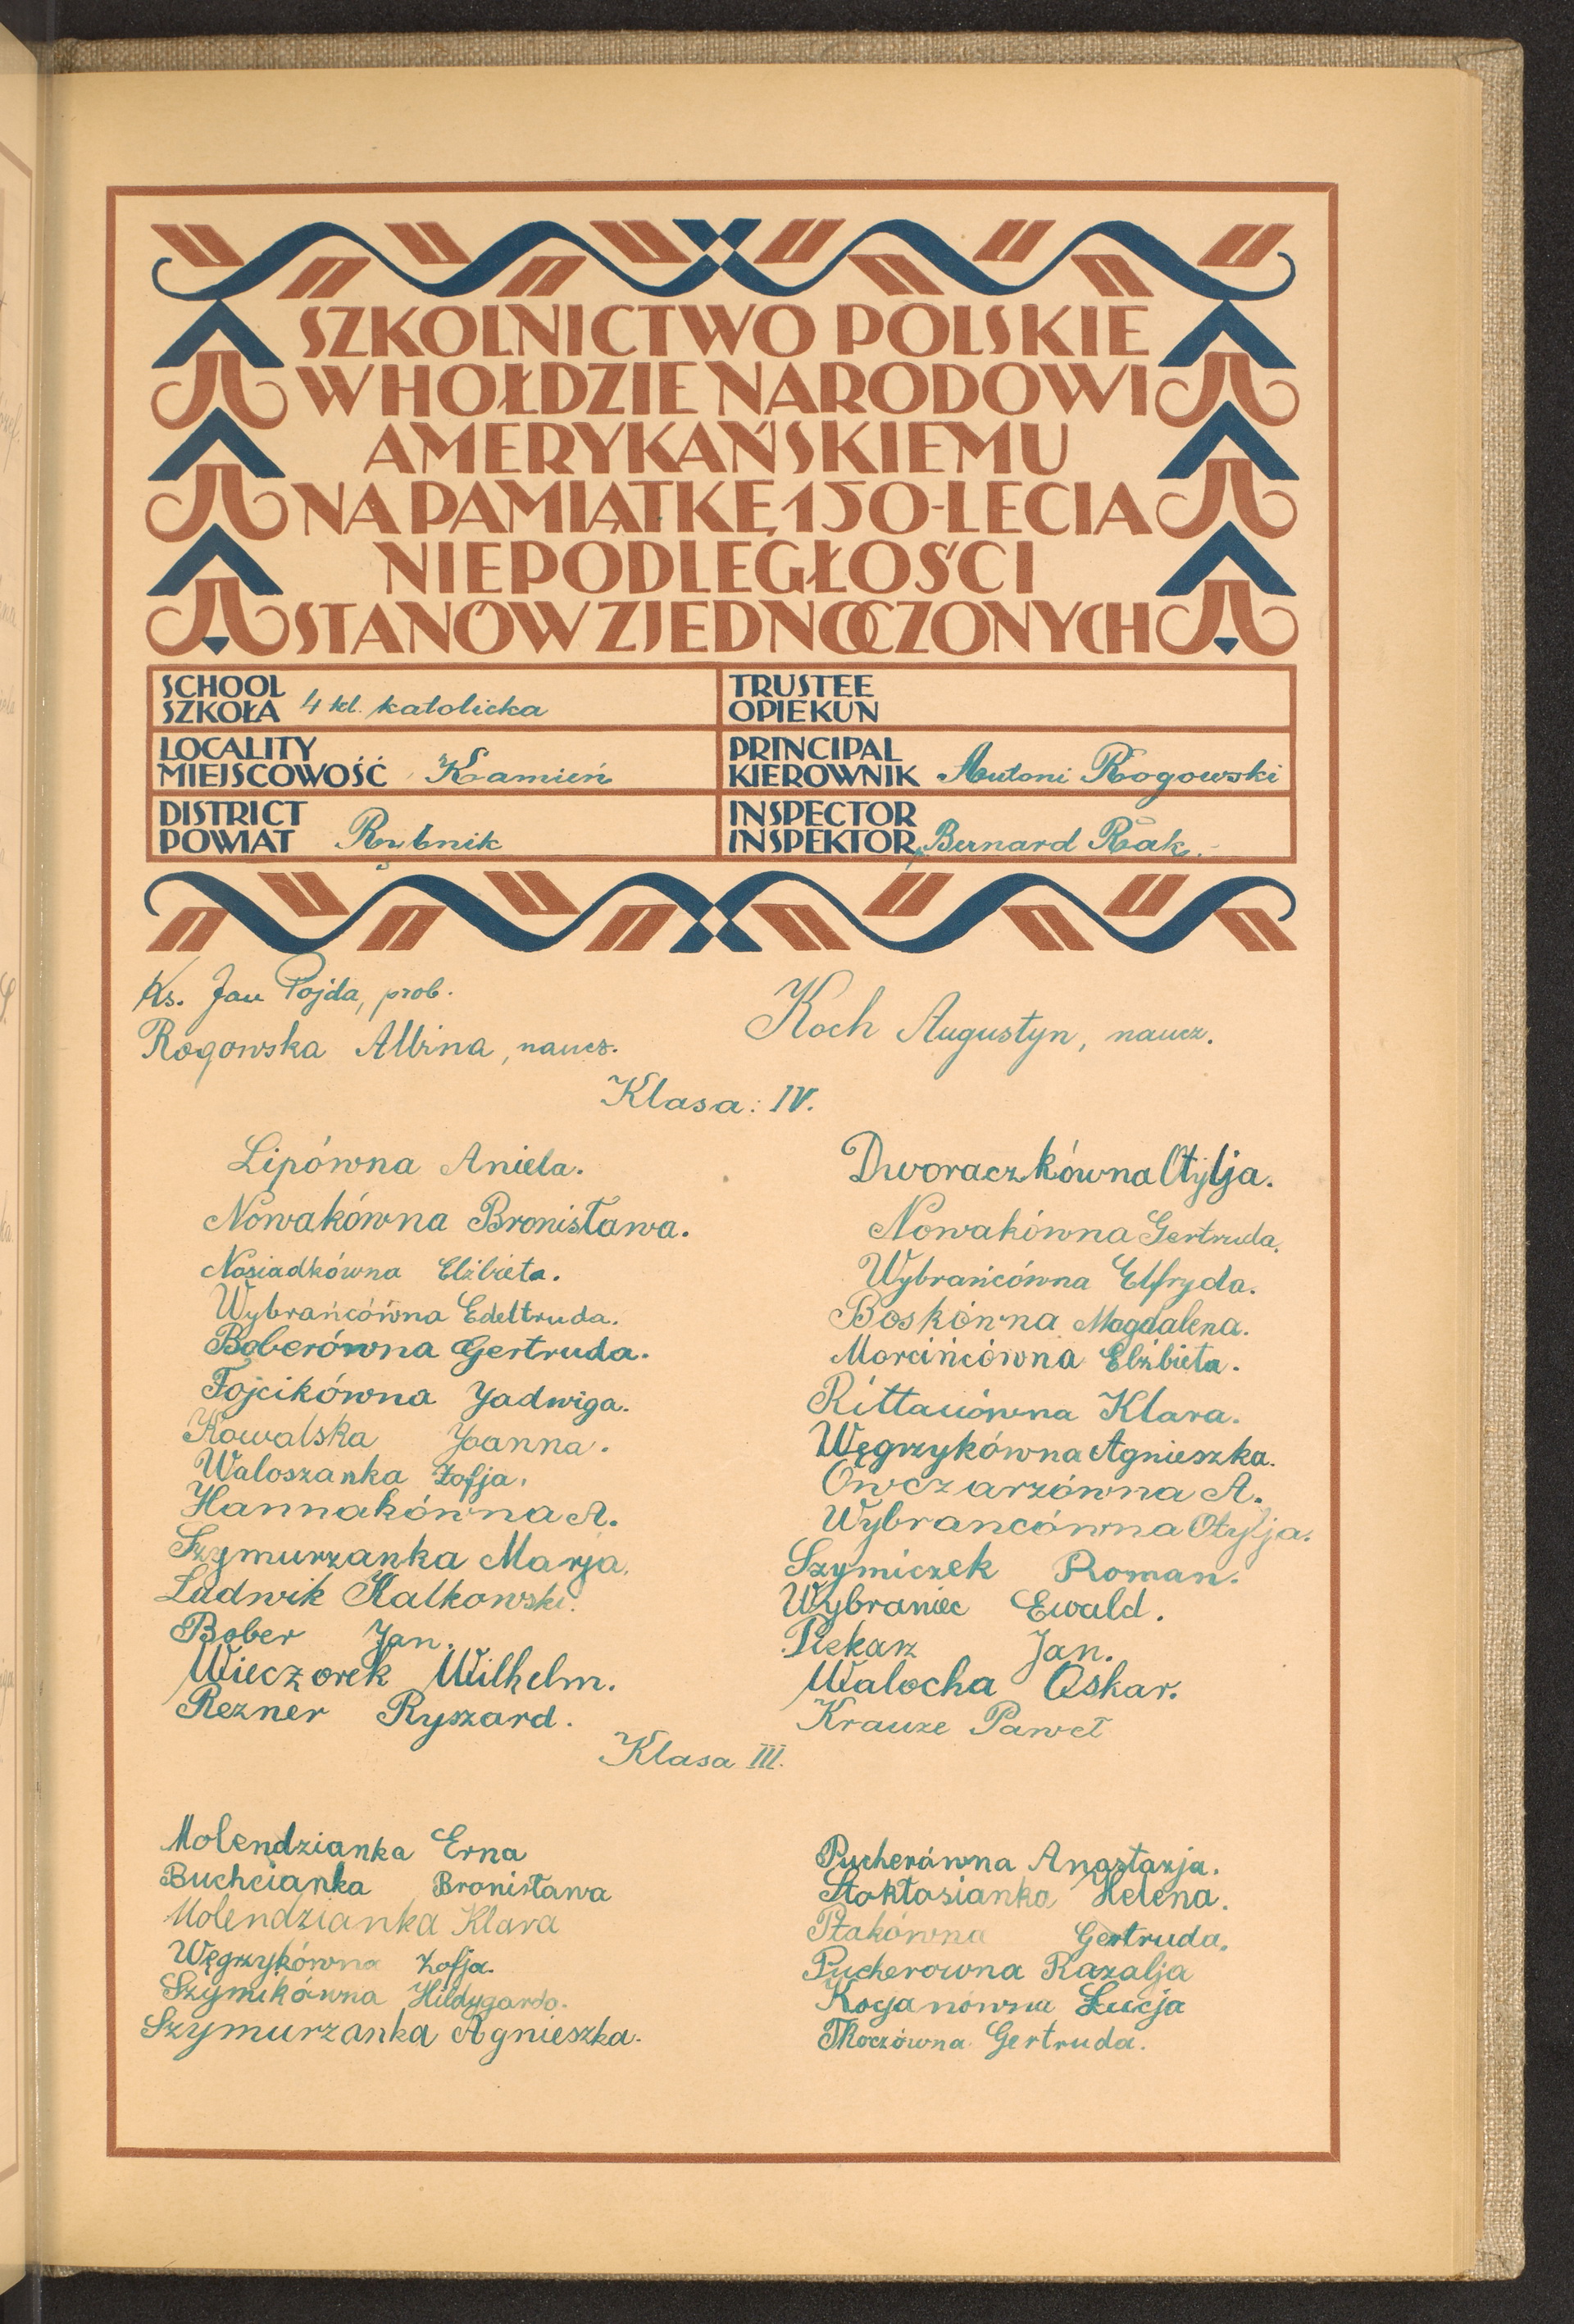 SZKOLNICTWO POLSKIE
W HOŁDZIE NARODOWI
AMERYKAŃSKIEMU
NA PAMIĄTKĘ 150-LECIA
NIEPODLEGŁOŚCI
STANÓW ZJEDNOCZONYCH
SCHOOL
SZKOŁA 4 kl. katolicka
TRUSTEE
OPIEKUN
LOCALITY
MIEJSCOWOŚĆ Kamień
PRINCIPAL
KIEROWNIK Antoni Rogowski
DISTRICT
POWIAT Rybnik
INSPECTOR
INSPEKTOR Bernard Rak.
Ks. Jan Pojda, prob.
Rogowska Albina, naucz.
Koch Augustyn, naucz.
Klasa: IV.
Lipówna Aniela.
Nowakówna Bronisława.
Nosiadkówna Elżbieta.
Wybrańcówna Edeltruda.
Boberówna Gertruda.
Fojcikówna Jadwiga.
Kowalska Joanna.
Waloszanka Zofja.
Hannakówna A.
Szymurzanka Marja.
Ludwik Kalkowski.
Bober Jan.
Wieczorek Wilhelm.
Rezner Ryszard.
Dworaczkówna Otylja.
Nowakówna Gertruda.
Wybrańcówna Elfryda.
Boskówna Magdalena.
Marcińcówna Elżbieta.
Rittauówna Klara.
Węgrzykówna Agnieszka.
Owczarzówna A.
Wybrancówna Otylja.
Szymiczek Roman.
Wybraniec Ewald.
Piekarz Jan.
Walocha Oskar.
Krauze Paweł
Klasa III.
Molendzianka Erna
Buchcianka Bronisława
Molendzianka Klara
Węgrzykówna Zofja.
Szymikówna Hildygarda.
Szymurzanka Agnieszka.
Pucherówna Anastazja.
Stokłosianka Helena.
Ptakówna Gertruda.
Pucherowna Razalja
Koganówna Łucja
Tkoczówna Gertruda.